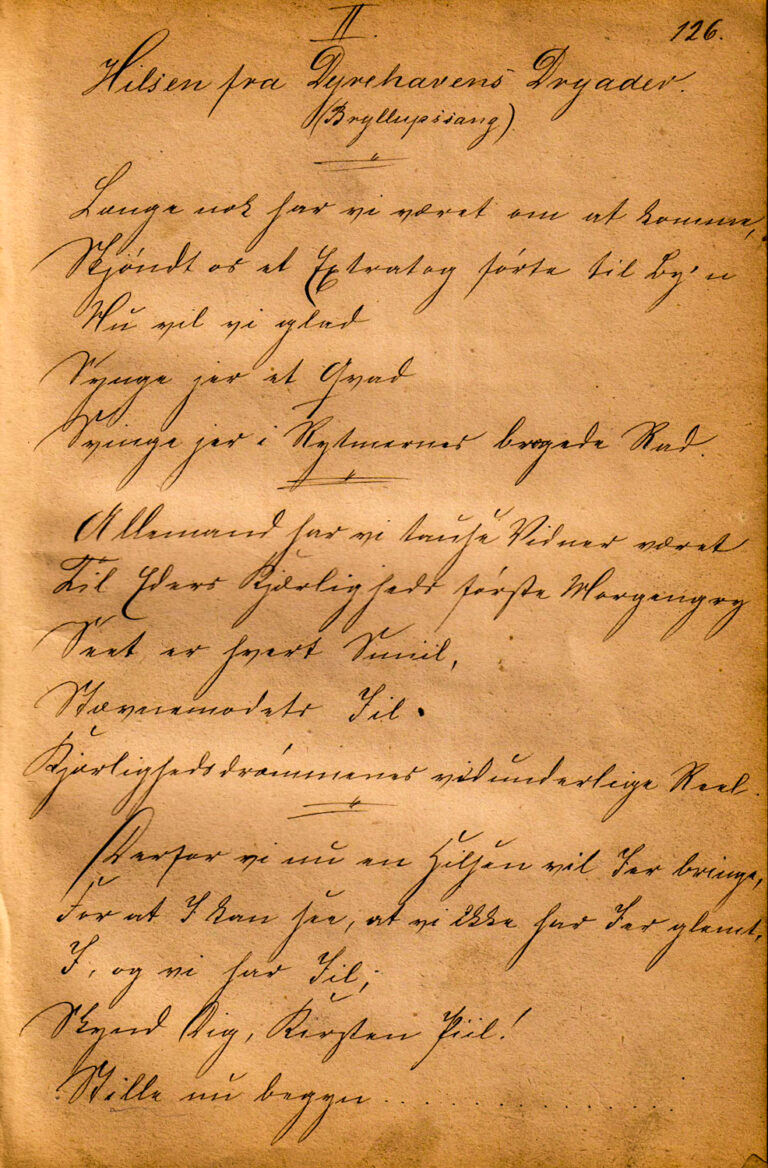 II
126.
Hilsen fra Dyrehavens Dryader.
(Bryllupssang)
Længe nok har vi været om at komme,
Skjöndt os et Extratog førte til By'n
Nu vil vi glad
Synge jer et Qvad
Svinge jer i Rytmernes brogede Rad.
Allemand har vi tause Vidner været
Til Eders Kjærligheds første Morgengry
Seet er hvert Smiil,
Stævnemødets Iil.
Kjærlighedsdrømmenes vidunderlige Reel.
Derfor vi nu en Hilsen vil Jer bringe,
For at I kan see, at vi ikke har Jer glemt,
I, og vi har Iil;
Skynd Dig, Kirsten Piil!
Stille nu begyn ..............